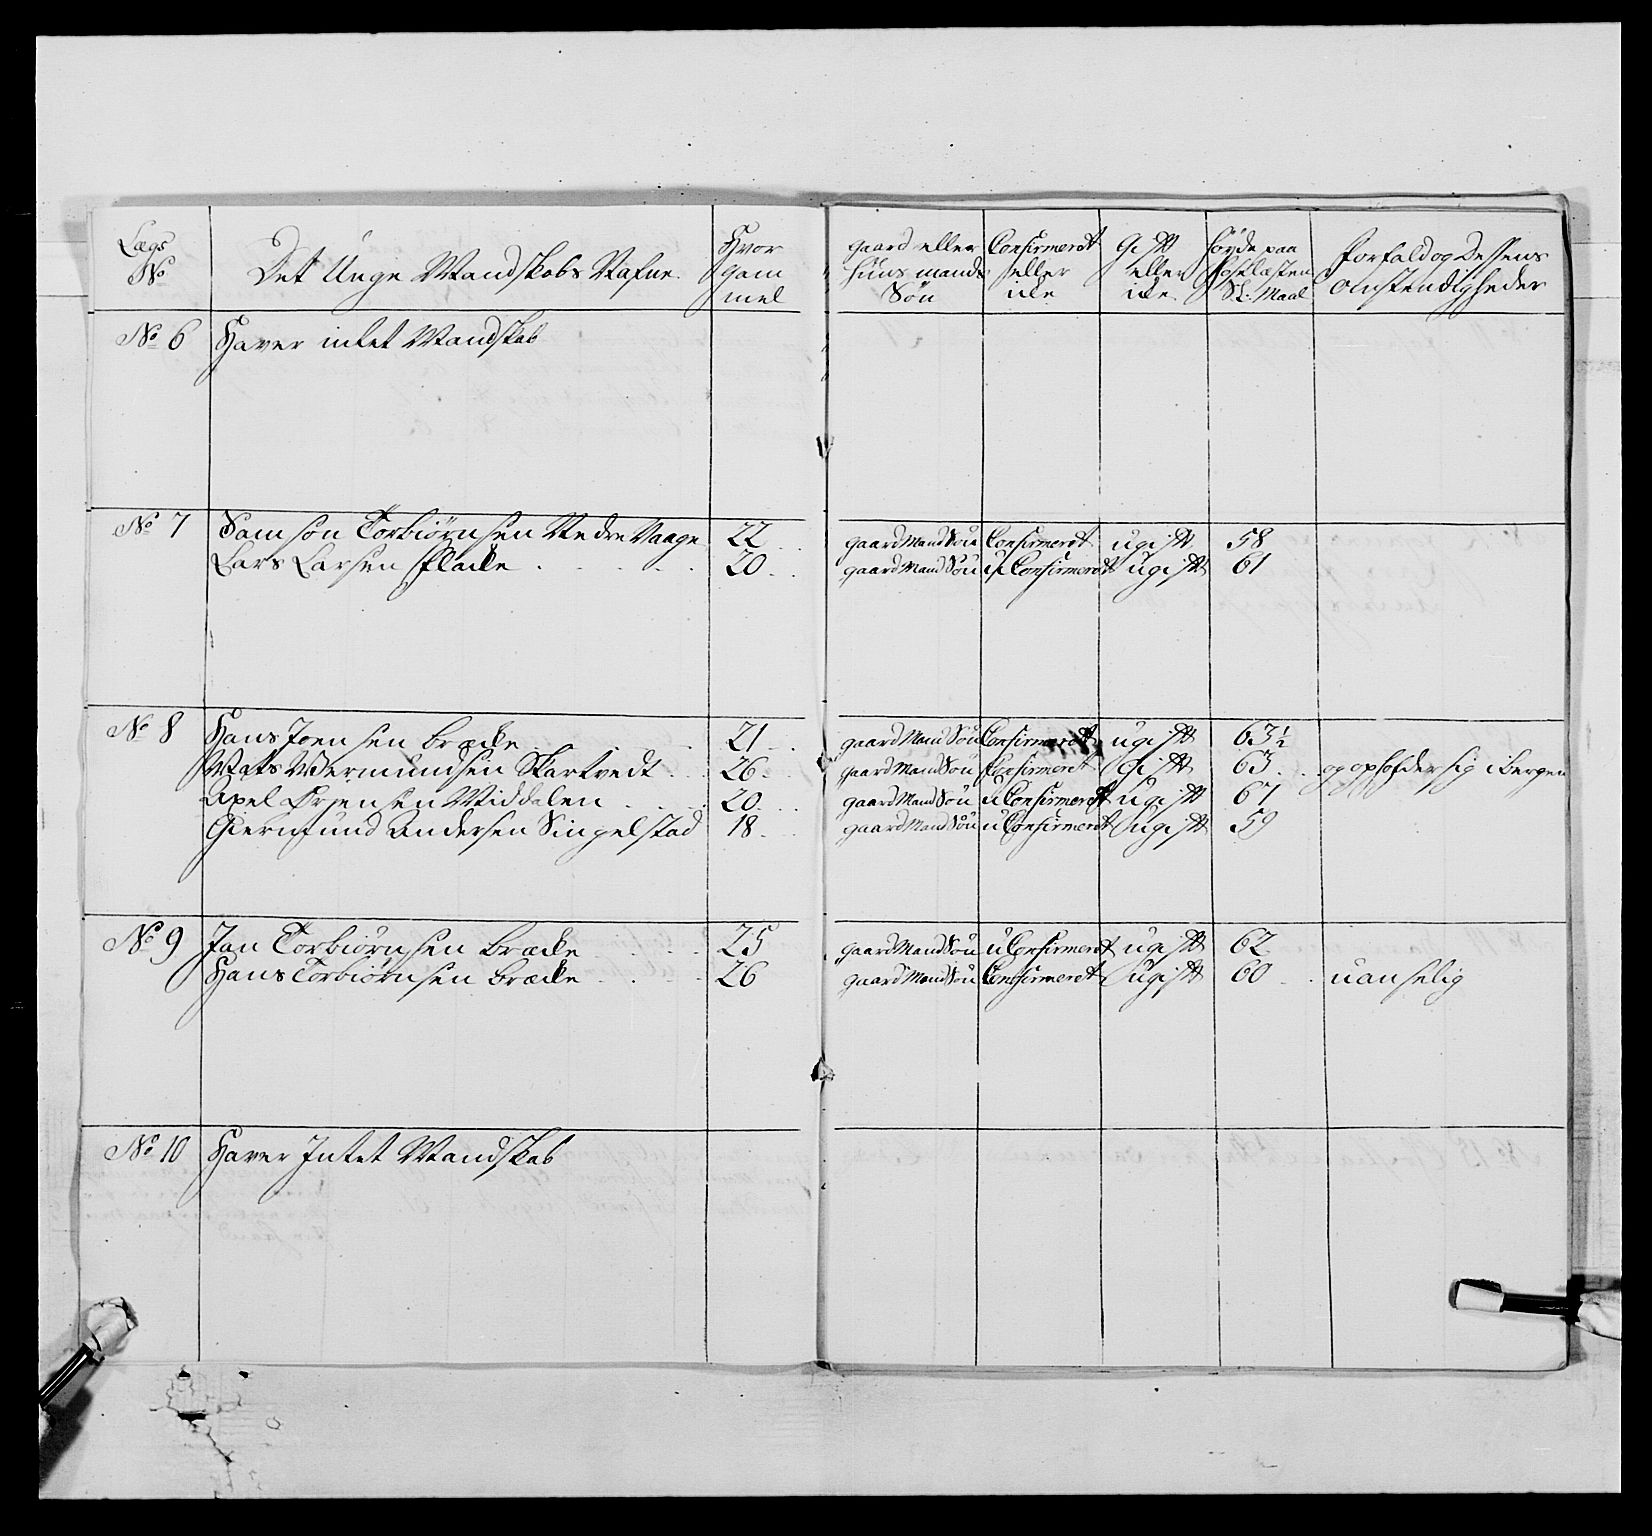 Lægs No | Det Unge Mandskabs Nafne | Hvor gam mel | gaard eller huusmands Søn | Confirmeret eller icke | Gift eller icke | Høyde paa Hoselæsten SL: Maal | Forfald og Dessens Omstendigheder
No 6 | Haver intet Mandskab
No 7 | Samson Torbiørnsen Nedre Vaage | 22 | gaard Mand Søn | Confirmeret | ugift | 58
Lars Larsen Flacke | 20 | gaard Mand Søn | u Confirmeret | ugift | 61
No 8 | Hans Joensen Bracke | 21 | gaard Mand Søn | Confirmeret | ugift | 63½
Mats Wermundsen Skartvedt | 26 | gaard Mand Søn | Confirmeret | Gift | 63 | og opholder sig i Bergen
Axel Ørjensen Middalen | 20 | gaard Mand Søn | u Confirmeret | ugift | 61
Giermund Andersen Singelstad | 18 | gaard Mand Søn | u Confirmeret | ugift | 59
No 9 | Jan Torbiørnsen Bracke | 25 | gaard Mand Søn | u Confirmeret | ugift | 62
Hans Torbiørnsen Bracke | 26 | gaard Mand Søn | Confirmeret | ugift | 60 | uanselig
No 10 | Haver Intet Mandskab